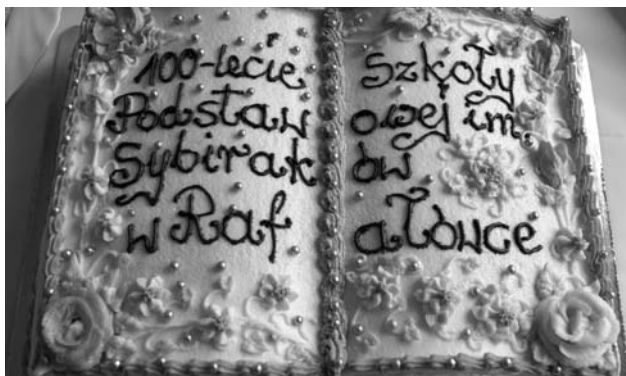 100-lecie Szkoły
Podstaw owej im.
Sybirak ów
w Raf ałówce